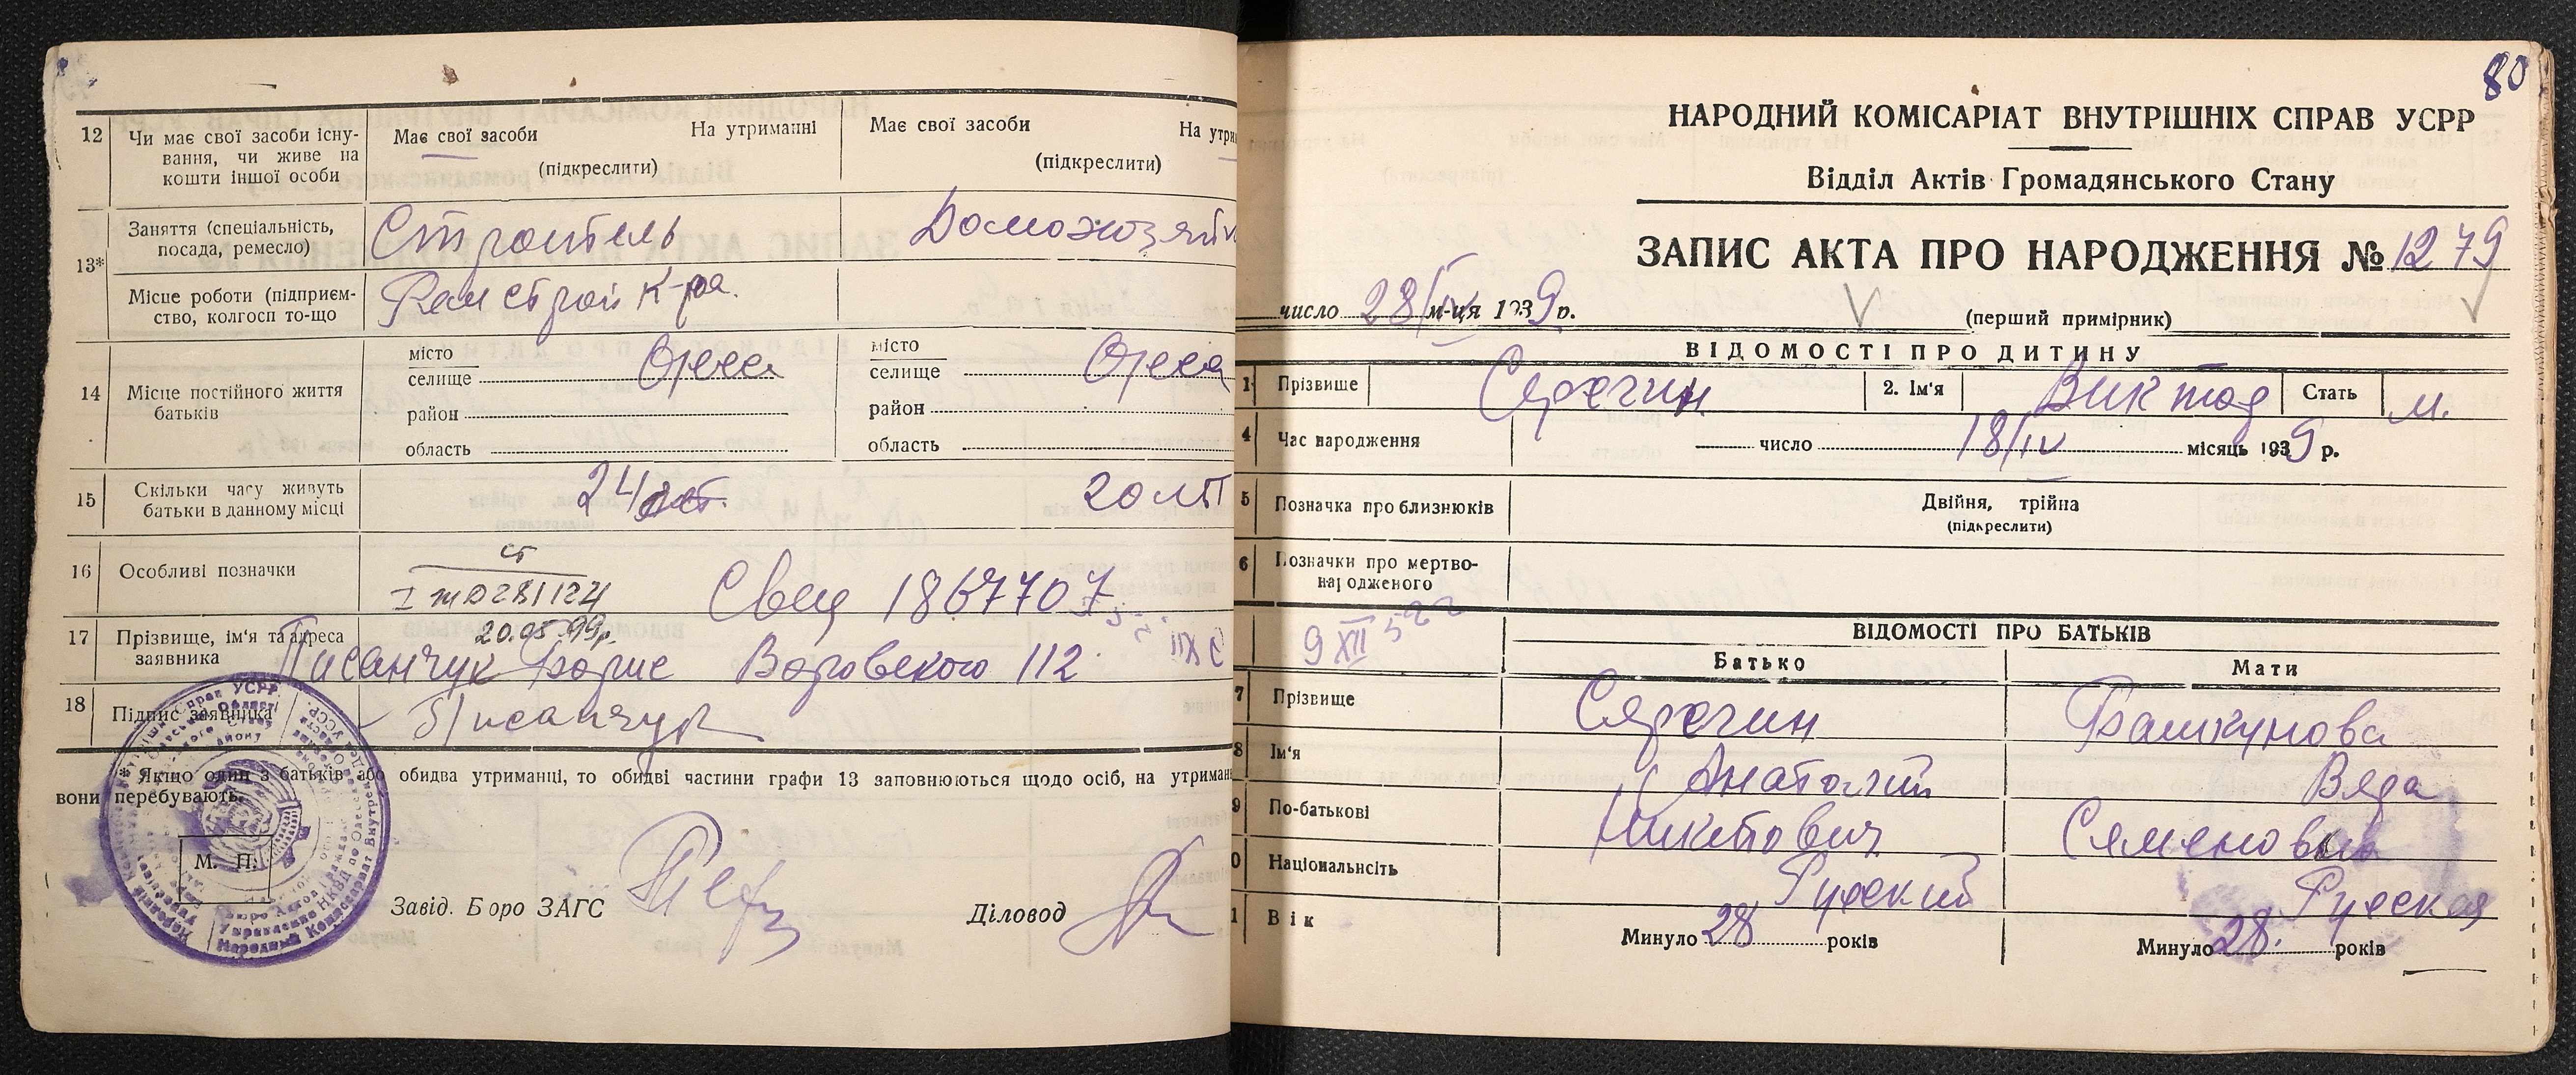 12 Чи має свої засоби існу-
вання, чи живе на
кошти іншої особи
Має свої засоби На утриманні
(підкреслити)
Має свої засоби На утри
(підкреслити)
13* Заняття (спеціальність,
посада, ремесло)
Строитель
Домохозяйк
Місце роботи (підприєм-
ство, колгосп то-що
Ремстрой к-ра.
14 Місце постійного життя
батьків
місто
селище Одесса
район
область
місто
селище Одесса
район
область
15 Скільки часу живуть
батьки в данному місці
24 лет.
20 лет
16 Особливі позначки
ст
I жД 281124
20.05.99р.
Свид 1867707
17 Прізвище, ім'я та адреса
заявника
Писанчук Борис Воровского 112
18 Підпис заявника
Писанчук
* Якщо один з батьків або обидва утриманці, то обидві частини графи 13 заповнюються щодо осіб, на утриман
вони перебувають.
М. П.
Завід. Бюро ЗАГС
Діловод
80
НАРОДНИЙ КОМІСАРІАТ ВНУТРІШНІХ СПРАВ УСРР
Відділ Актів Громадянського Стану
ЗАПИС АКТА ПРО НАРОДЖЕННЯ № 1279
число 28/IV м-ця 1939 р.
(перший примірник)
ВІДОМОСТІ ПРО ДИТИНУ
1 Прізвище Сярегин 2. Ім'я Виктор Стать м.
4 Час народження число 18/IV місяць 1939 р.
5 Позначка про близнюків
Двійня, трійня
(підкреслити)
6 Позначки про мертво-
народженого
9 XII 522
ВІДОМОСТІ ПРО БАТЬКІВ
Батько Мати
7 Прізвище Сярегин Башкунова
8 Ім'я Анатолий Вера
9 По-батькові Никитович Семеновна
0 Національність Русский Русская
1 Вік Минуло 28 років Минуло 28. років